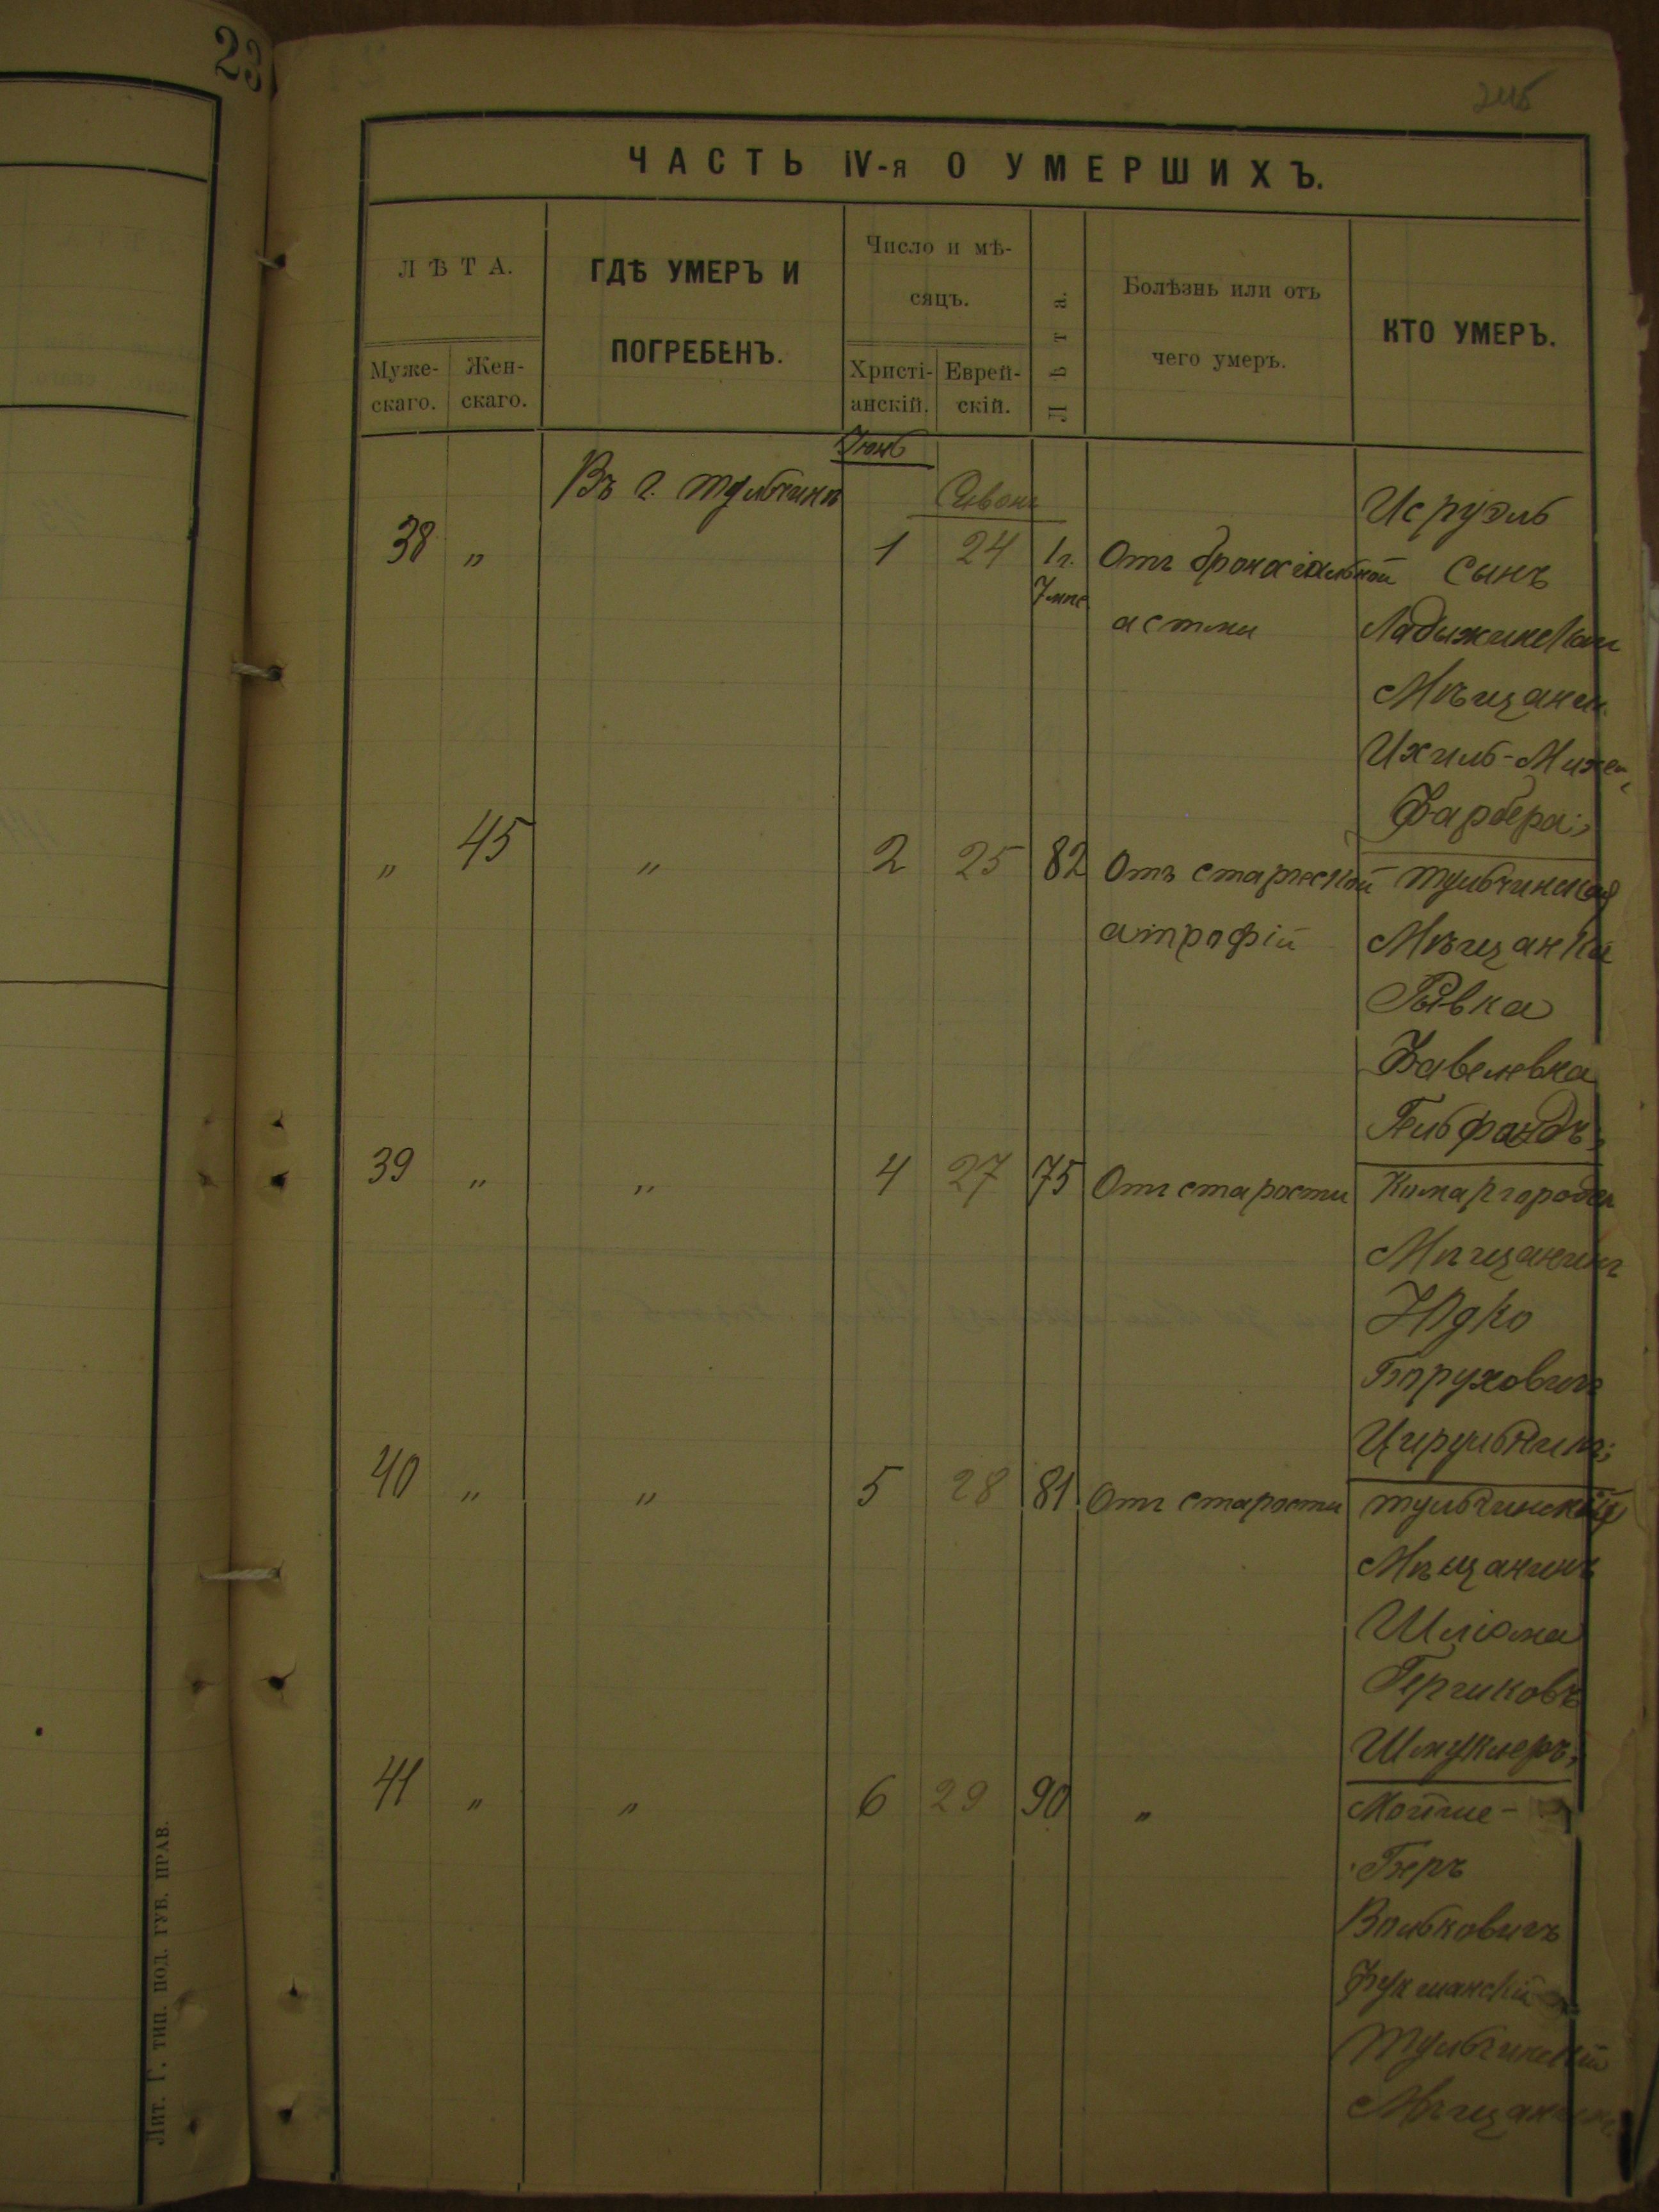 23
ЧАСТЬ IV-я О УМЕРШИХЪ.
ЛѢТА.
Муже-
скаго.
Жен-
скаго.
ГДѢ УМЕРЪ И
ПОГРЕБЕНЪ.
Число и мѣ-
сяцъ.
Христі-
анскій.
Еврей-
скій.
Лѣта.
Болѣзнь или отъ
чего умеръ.
КТО УМЕРЪ.
Въ г. Тульчинѣ
Іюнь
Сивонъ
38 „ 1 24 1 г. 7 мѣс Отъ бронхіальной
астми
Исруэль
сынъ
Ладыжинскаго
Мѣщанин
Ихиль-Михел
Фарбера;
„ 45 „ 2 25 82 Отъ старческой
атрофій
Тульчинская
Мѣщанка
Рывка
Завелевна
Гельфандъ;
39 „ „ 4 27 75 Отъ старости
Комаргородск
Мѣщанинъ
Юдко
Борухович
Цирульник;
40 „ „ 5 28 81 Отъ старости
Тульчинскій
Мѣщанинъ
Шліома
Гершковъ
Шмуклеръ;
41 „ „ 6 29 90 „
Мойше-
Беръ
Вольковичъ
Тульчинскій
Мѣщанин
Лит. Г. тип. под. губ. прав.